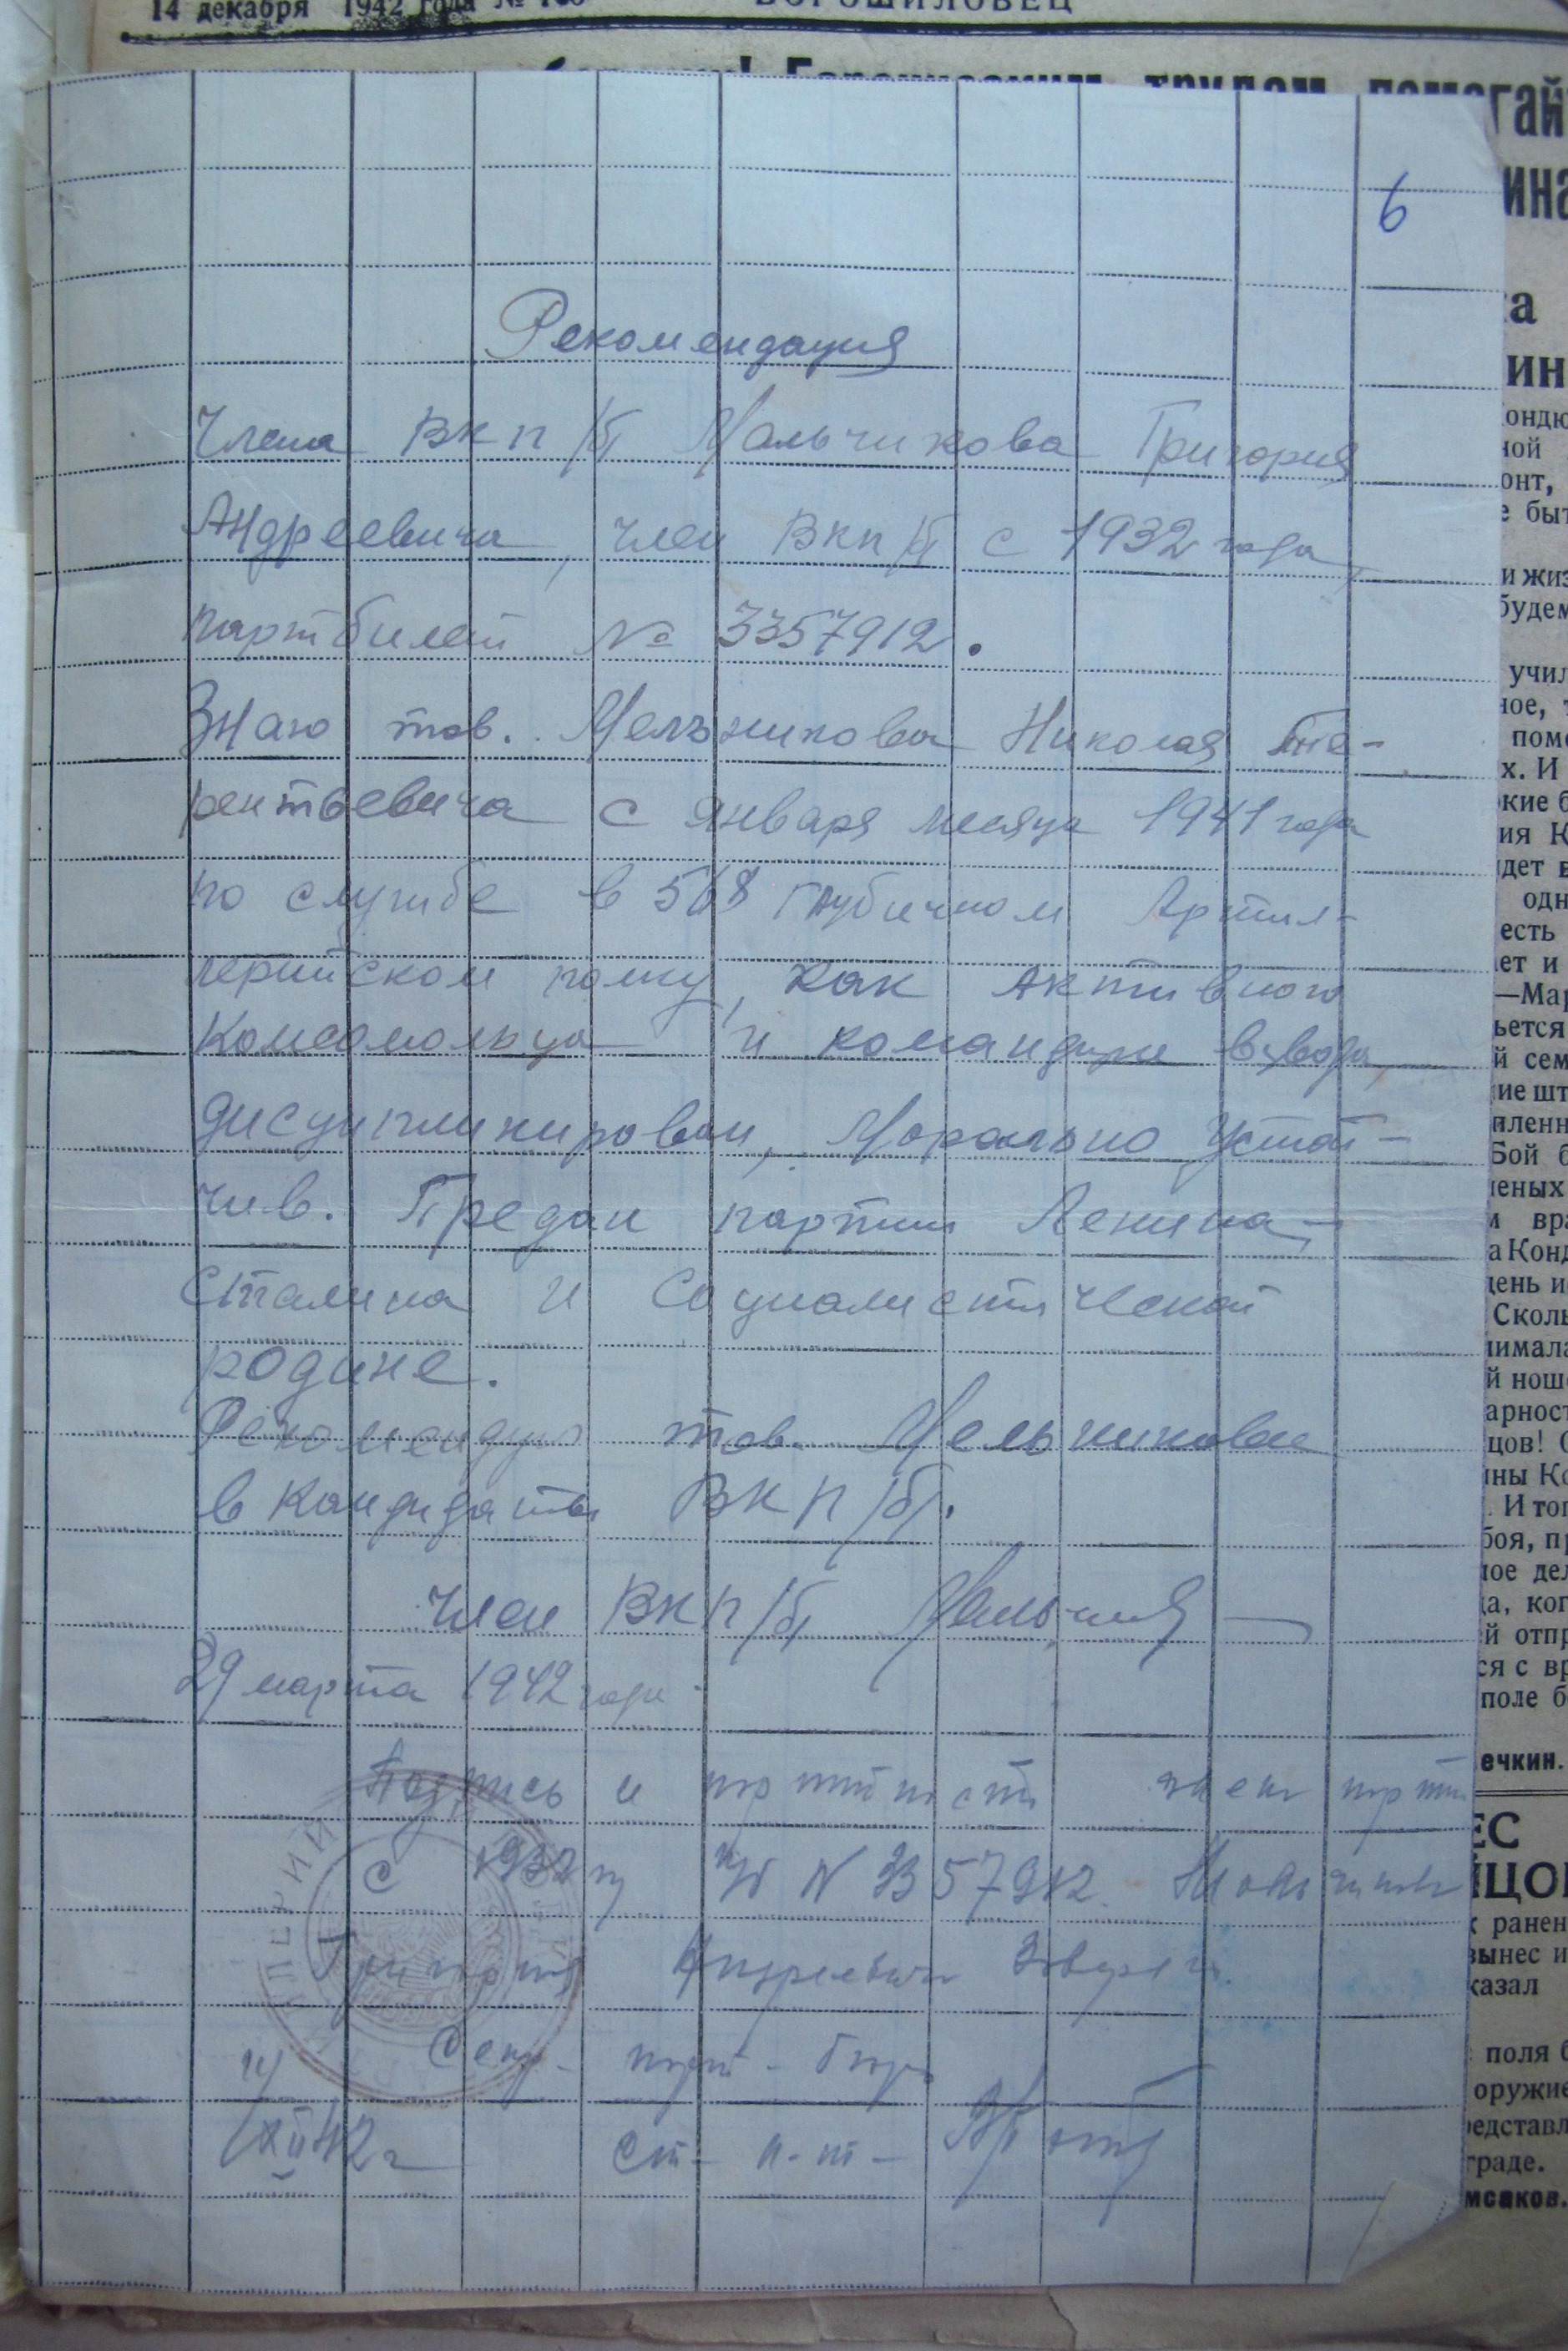 14 декабря 1942 года №
ВОРОШИЛОВЕЦ
трудом помогай
6
Рекомендация
Члена ВКП/б/ Мальчикова Григория
Андреевича, член ВКП/б/ с 1932 года,
партбилет № 3357912.
Знаю тов. Мельникова Николая Те-
рентьевича с января месяца 1941 года
по службе в 568 Гаубичном Артил-
лерийском полку, как активного
комсомольца и командира взвода,
дисциплинирован, Морально Устой-
чив. Предан партии Ленина-
Сталина и Социалистической
родине.
Рекомендую тов. Мельникова
в кандидаты ВКП/б/.
Член ВКП/б/
29 марта 1942 года.
Подпись и член партии
с 1932 г. № 3357912 Мальчикова
Григория Андреевича Заверяю.
Секр. парт. бюро
XII 42 г. ст.
ондю
ной
онт,
е быт
и жиз
будем
учил
ное, т
помо
х. И
кие б
ия К
дет в
одн
есть
ет и
—Мар
ьется
й сем
ие шт
пленн
Бой б
еных
вра
а Конд
день и
Сколь
нимала
й нош
арност
цов! О
ны Ко
И тог
боя, пр
ное дел
а, ког
й отпр
ся с вр
поле б
ечкин.
ЕС
ЙЦОВ
ранен
вынес и
казал
поля б
оружие
редставл
граде.
мсаков.